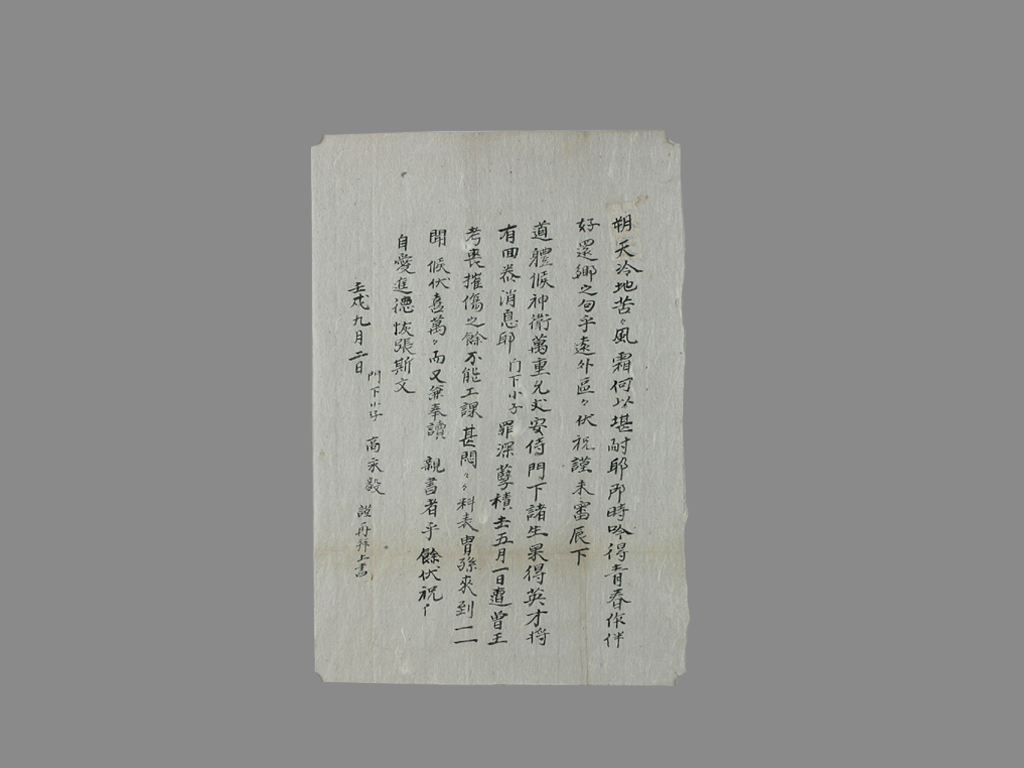 朔天冷地苦〻風霜何以堪耐耶那時吟得靑春作伴
好還鄕之句乎遠外區〻伏祝謹未審辰下
道體候神衛萬重允丈安侍門下諸生果得英才將
有回泰消息耶門下小子罪深孼積去五月一日遭曾王
考喪摧傷之餘不能工課甚悶〻〻科表胄孫來到一二
聞候伏喜萬〻而又兼奉讀親書者乎餘伏祝
自愛進德恢張斯文
壬戌九月二日
門下小子高永毅謹再拜上書